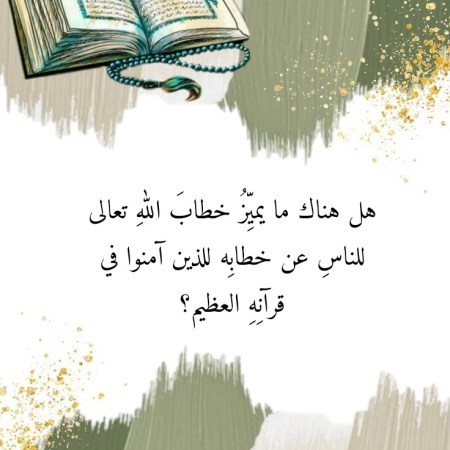 هل هناك ما يميِّزُ خطابَ اللهِ تعالى
للناسِ عن خطابِه للذين آمنوا في
قرآنِهِ العظيم؟